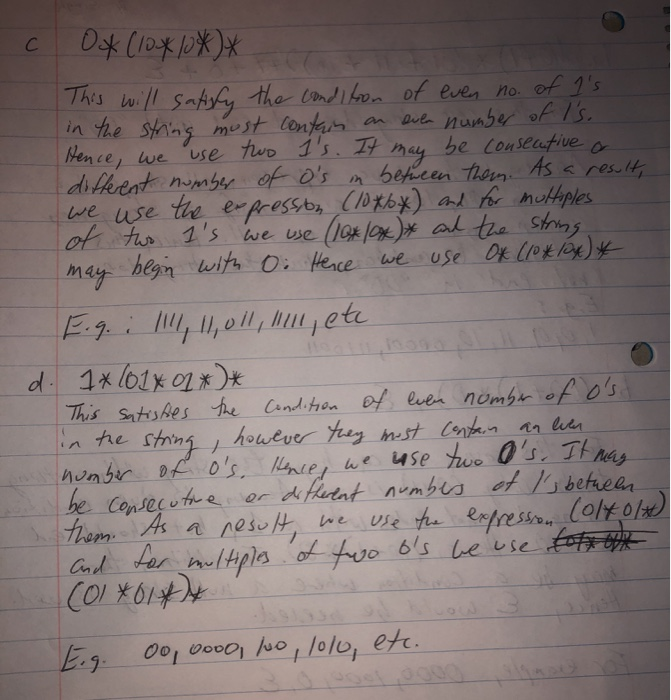 c 0*(10*10*)*
This will satisfy the condition of even no. of 1's
in the string must contain an even number of 1's.
Hence, we use two 1's. It may be consecutive or
different number of 0's in between them. As a result,
we use the expression (10*10*) and for multiples
of two 1's we use (10*10*)* and the string
may begin with 0. Hence we use 0*(10*10*)*
E.g. : 1111, 11, 011, 11111, etc
d. 1*(01*01*)*
This satisfies the condition of even number of 0's
in the string, however they must contain an even
number of 0's. Hence, we use two 0's. It may
be consecutive or different numbers of 1's between
them. As a result, we use the expression (01*01*)
and for multiples of two 0's we use
(01*01*)*
E.g. 00, 0000, 100, 1010, etc.